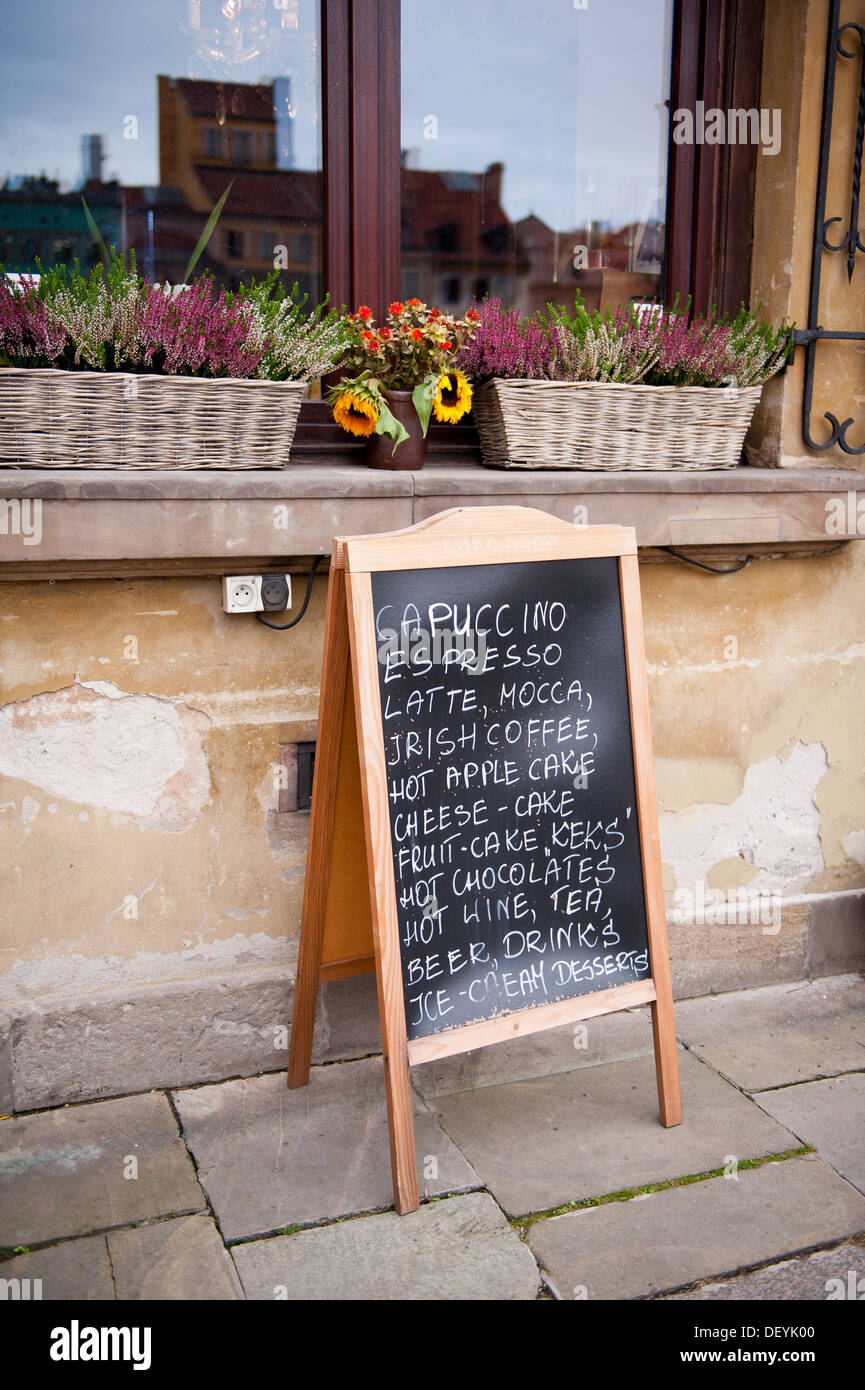 CAPUCCINO
ESPRESSO
LATTE, MOCCA,
IRISH COFFEE,
HOT APPLE CAKE
CHEESE-CAKE
FRUIT-CAKE "KEKS"
HOT CHOCOLATES
HOT WINE, TEA,
BEER, DRINKS
ICE-CREAM DESSERTS
alamy
Image ID: DEYK00
www.alamy.com